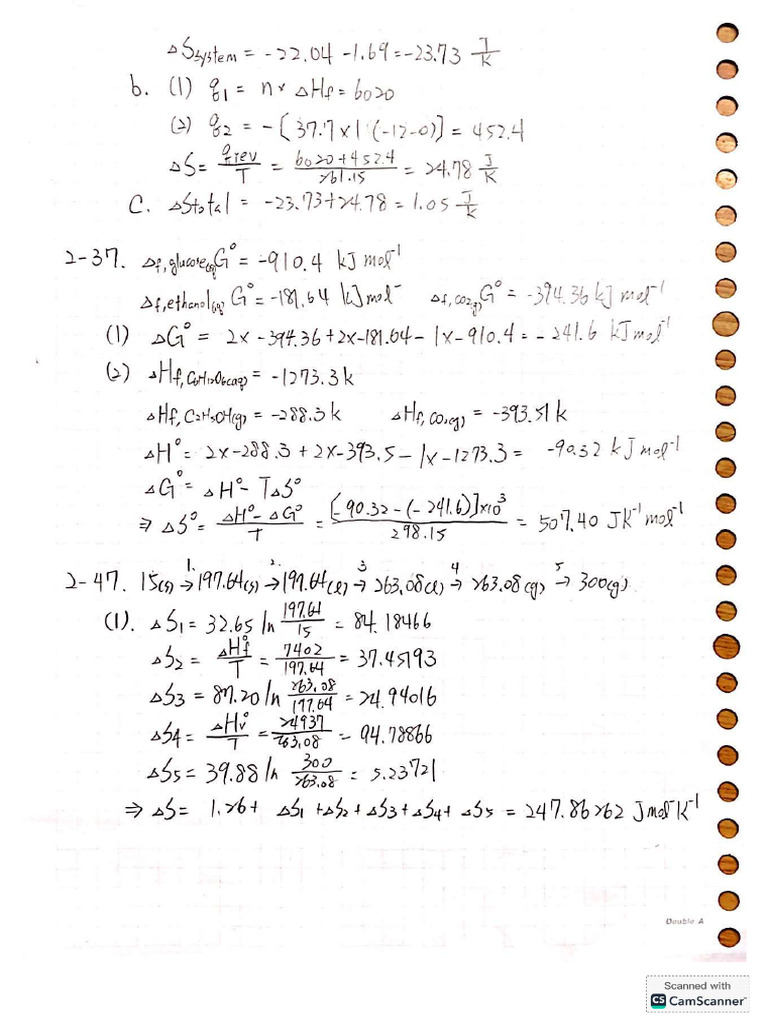 ΔSsystem = -22.04 -1.69 = -23.73 J/K
b. (1) q1 = n× ΔHf = 6020
(2) q2 = -[37.7×1(-12-0)] = 452.4
ΔS = qrev/T = 6020+452.4/261.15 = 24.78 J/K
C. ΔStotal = -23.73+24.78 = 1.05 J/K
2-37. Δf,glucose(aq)G° = -910.4 kJ mol⁻¹
Δf,ethanol(aq)G° = -181.64 kJ mol⁻ Δf,CO2(g)G° = -394.36 kJ mol⁻¹
(1) ΔG° = 2x -394.36+2x-181.64 - 1x-910.4 = -241.6 kJ mol⁻¹
(2) ΔHf,C6H12O6(aq) = -1273.3 k
ΔHf,C2H5OH(g) = -288.3 k ΔHf,CO2(g) = -393.51 k
ΔH° = 2x-288.3 + 2x-393.5 - 1x-1273.3 = -90.32 kJ mol⁻¹
ΔG° = ΔH° - TΔS°
⇒ ΔS° = ΔH°-ΔG°/T = [-90.32-(-241.6)]×10³/298.15 = 507.40 JK⁻¹mol⁻¹
2-47. 15(s) →1. 197.64(s) →2. 197.64(l) →3 263.08(l) →4 263.08(g) →5 300(g)
(1). ΔS1 = 32.65 ln 197.64/15 = 84.18466
ΔS2 = ΔHf°/T = 7402/197.64 = 37.45193
ΔS3 = 87.20 ln 263.08/197.64 = 24.94016
ΔS4 = ΔHv°/T = 24937/263.08 = 94.78866
ΔS5 = 39.88 ln 300/263.08 = 5.23721
⇒ ΔS = 1.26+ ΔS1 +ΔS2+ΔS3+ΔS4+ ΔS5 = 247.86262 J mol⁻K⁻¹
Double A
Scanned with
CS CamScanner